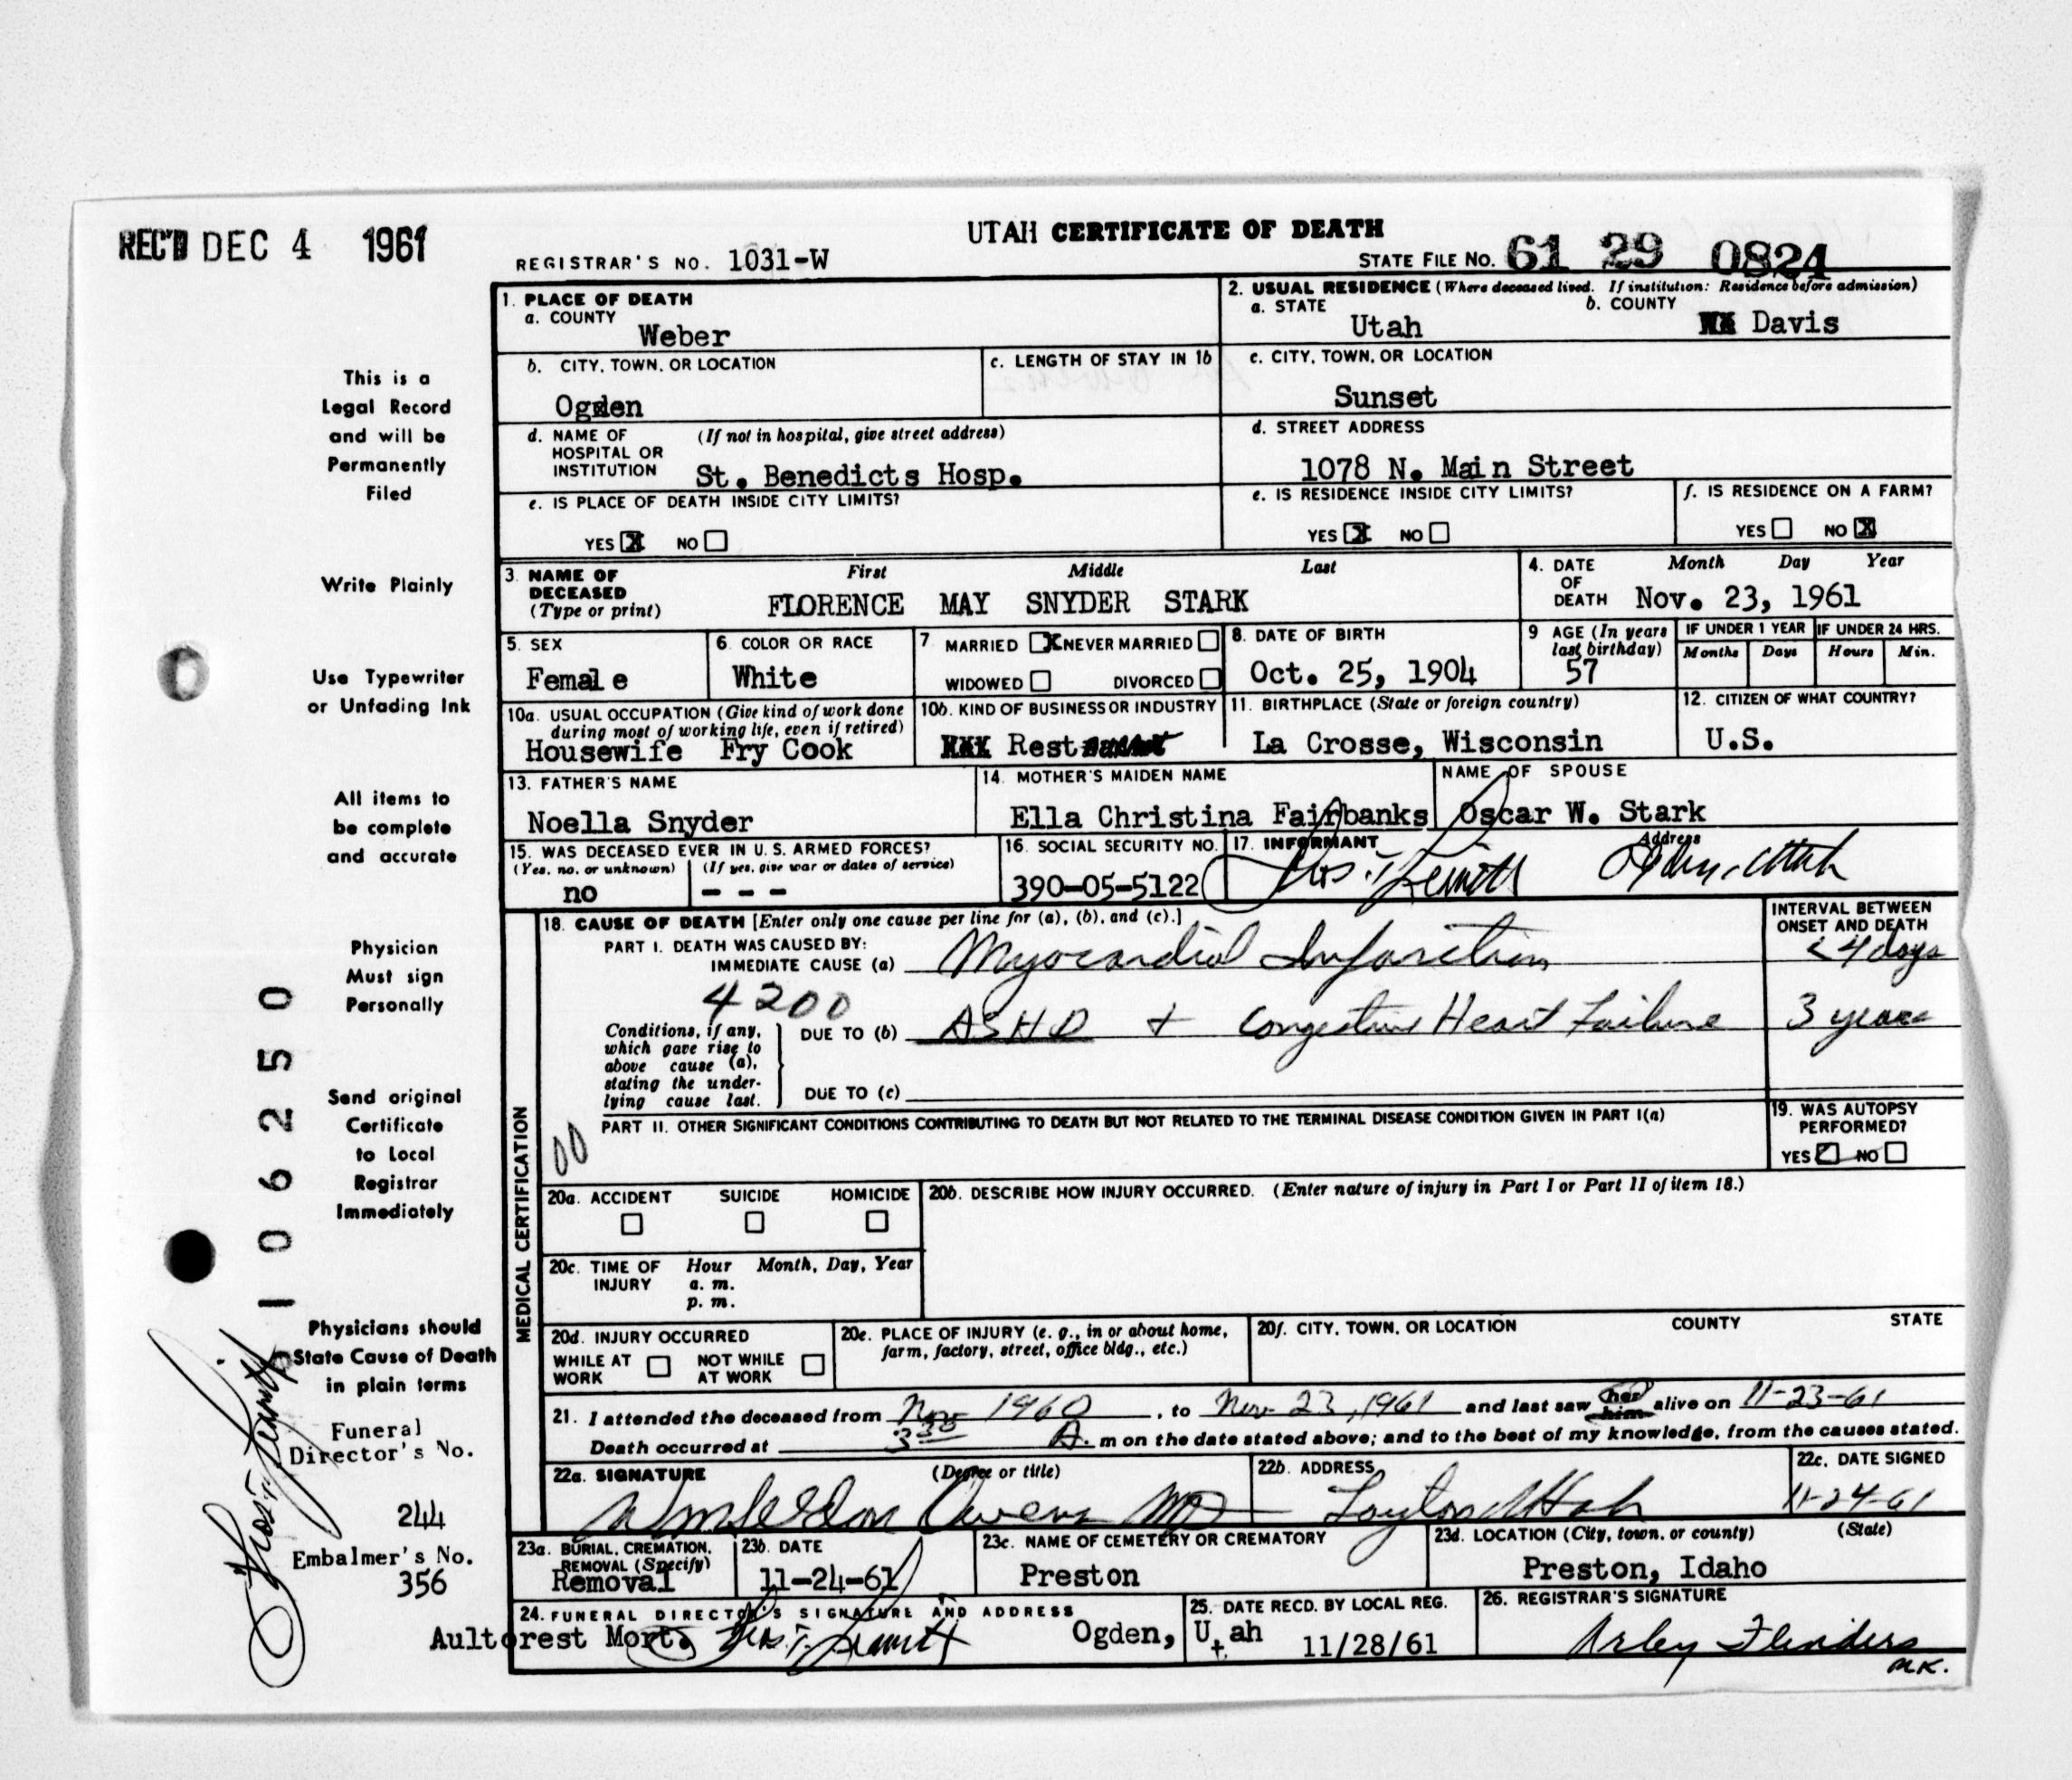 REC'D DEC 4 1961
UTAH CERTIFICATE OF DEATH
REGISTRAR'S NO. 1031-W
STATE FILE NO. 61 29 0824
This is a
Legal Record
and will be
Permanently
Filed
Write Plainly
Use Typewriter
or Unfading Ink
All items to
be complete
and accurate
Physician
Must sign
Personally
Send original
Certificate
to Local
Registrar
Immediately
Physicians should
State Cause of Death
in plain terms
Funeral
Director's No.
244
Embalmer's No.
356
1 0 6 2 5 0
1. PLACE OF DEATH
a. COUNTY
Weber
b. CITY, TOWN, OR LOCATION
Ogden
c. LENGTH OF STAY IN 1b
d. NAME OF HOSPITAL OR INSTITUTION (If not in hospital, give street address)
St. Benedicts Hosp.
e. IS PLACE OF DEATH INSIDE CITY LIMITS?
YES X NO
2. USUAL RESIDENCE (Where deceased lived. If institution: Residence before admission)
a. STATE
Utah
b. COUNTY
Davis
c. CITY, TOWN, OR LOCATION
Sunset
d. STREET ADDRESS
1078 N. Main Street
e. IS RESIDENCE INSIDE CITY LIMITS?
YES X NO
f. IS RESIDENCE ON A FARM?
YES NO X
3. NAME OF DECEASED (Type or print)
First Middle Last
FLORENCE MAY SNYDER STARK
4. DATE OF DEATH
Month Day Year
Nov. 23, 1961
5. SEX
Female
6. COLOR OR RACE
White
7 MARRIED X NEVER MARRIED
WIDOWED DIVORCED
8. DATE OF BIRTH
Oct. 25, 1904
9 AGE (In years last birthday)
57
IF UNDER 1 YEAR
Months Days
IF UNDER 24 HRS.
Hours Min.
10a. USUAL OCCUPATION (Give kind of work done during most of working life, even if retired)
Housewife Fry Cook
10b. KIND OF BUSINESS OR INDUSTRY
Rest
11. BIRTHPLACE (State or foreign country)
La Crosse, Wisconsin
12. CITIZEN OF WHAT COUNTRY?
U.S.
13. FATHER'S NAME
Noella Snyder
14. MOTHER'S MAIDEN NAME
Ella Christina Fairbanks
NAME OF SPOUSE
Oscar W. Stark
15. WAS DECEASED EVER IN U.S. ARMED FORCES?
(Yes, no, or unknown) (If yes, give war or dates of service)
no - - -
16. SOCIAL SECURITY NO.
390-05-5122
17. INFORMANT
Address
MEDICAL CERTIFICATION
18. CAUSE OF DEATH [Enter only one cause per line for (a), (b), and (c).]
PART I. DEATH WAS CAUSED BY:
IMMEDIATE CAUSE (a) Myocardial Infarction
INTERVAL BETWEEN ONSET AND DEATH
< 4 days
4200
Conditions, if any, which gave rise to above cause (a), stating the underlying cause last.
DUE TO (b) ASHD + Congestive Heart Failure
3 years
DUE TO (c)
PART II. OTHER SIGNIFICANT CONDITIONS CONTRIBUTING TO DEATH BUT NOT RELATED TO THE TERMINAL DISEASE CONDITION GIVEN IN PART I(a)
00
19. WAS AUTOPSY PERFORMED?
YES NO
20a. ACCIDENT SUICIDE HOMICIDE
20b. DESCRIBE HOW INJURY OCCURRED. (Enter nature of injury in Part I or Part II of item 18.)
20c. TIME OF INJURY Hour Month, Day, Year
a. m.
p. m.
20d. INJURY OCCURRED
WHILE AT WORK NOT WHILE AT WORK
20e. PLACE OF INJURY (e. g., in or about home, farm, factory, street, office bldg., etc.)
20f. CITY, TOWN, OR LOCATION COUNTY STATE
21. I attended the deceased from Nov 1960, to Nov 23, 1961 and last saw her him alive on 11-23-61
Death occurred at 3 30 A. m on the date stated above; and to the best of my knowledge, from the causes stated.
22a. SIGNATURE (Degree or title)
Owens MD
22b. ADDRESS
Layton Utah
22c. DATE SIGNED
11-24-61
23a. BURIAL, CREMATION, REMOVAL (Specify)
Removal
23b. DATE
11-24-61
23c. NAME OF CEMETERY OR CREMATORY
Preston
23d. LOCATION (City, town, or county) (State)
Preston, Idaho
24. FUNERAL DIRECTOR'S SIGNATURE AND ADDRESS
Aultorest Mort. Ogden, Utah
25. DATE RECD. BY LOCAL REG.
11/28/61
26. REGISTRAR'S SIGNATURE
Arley Flinders
M.K.